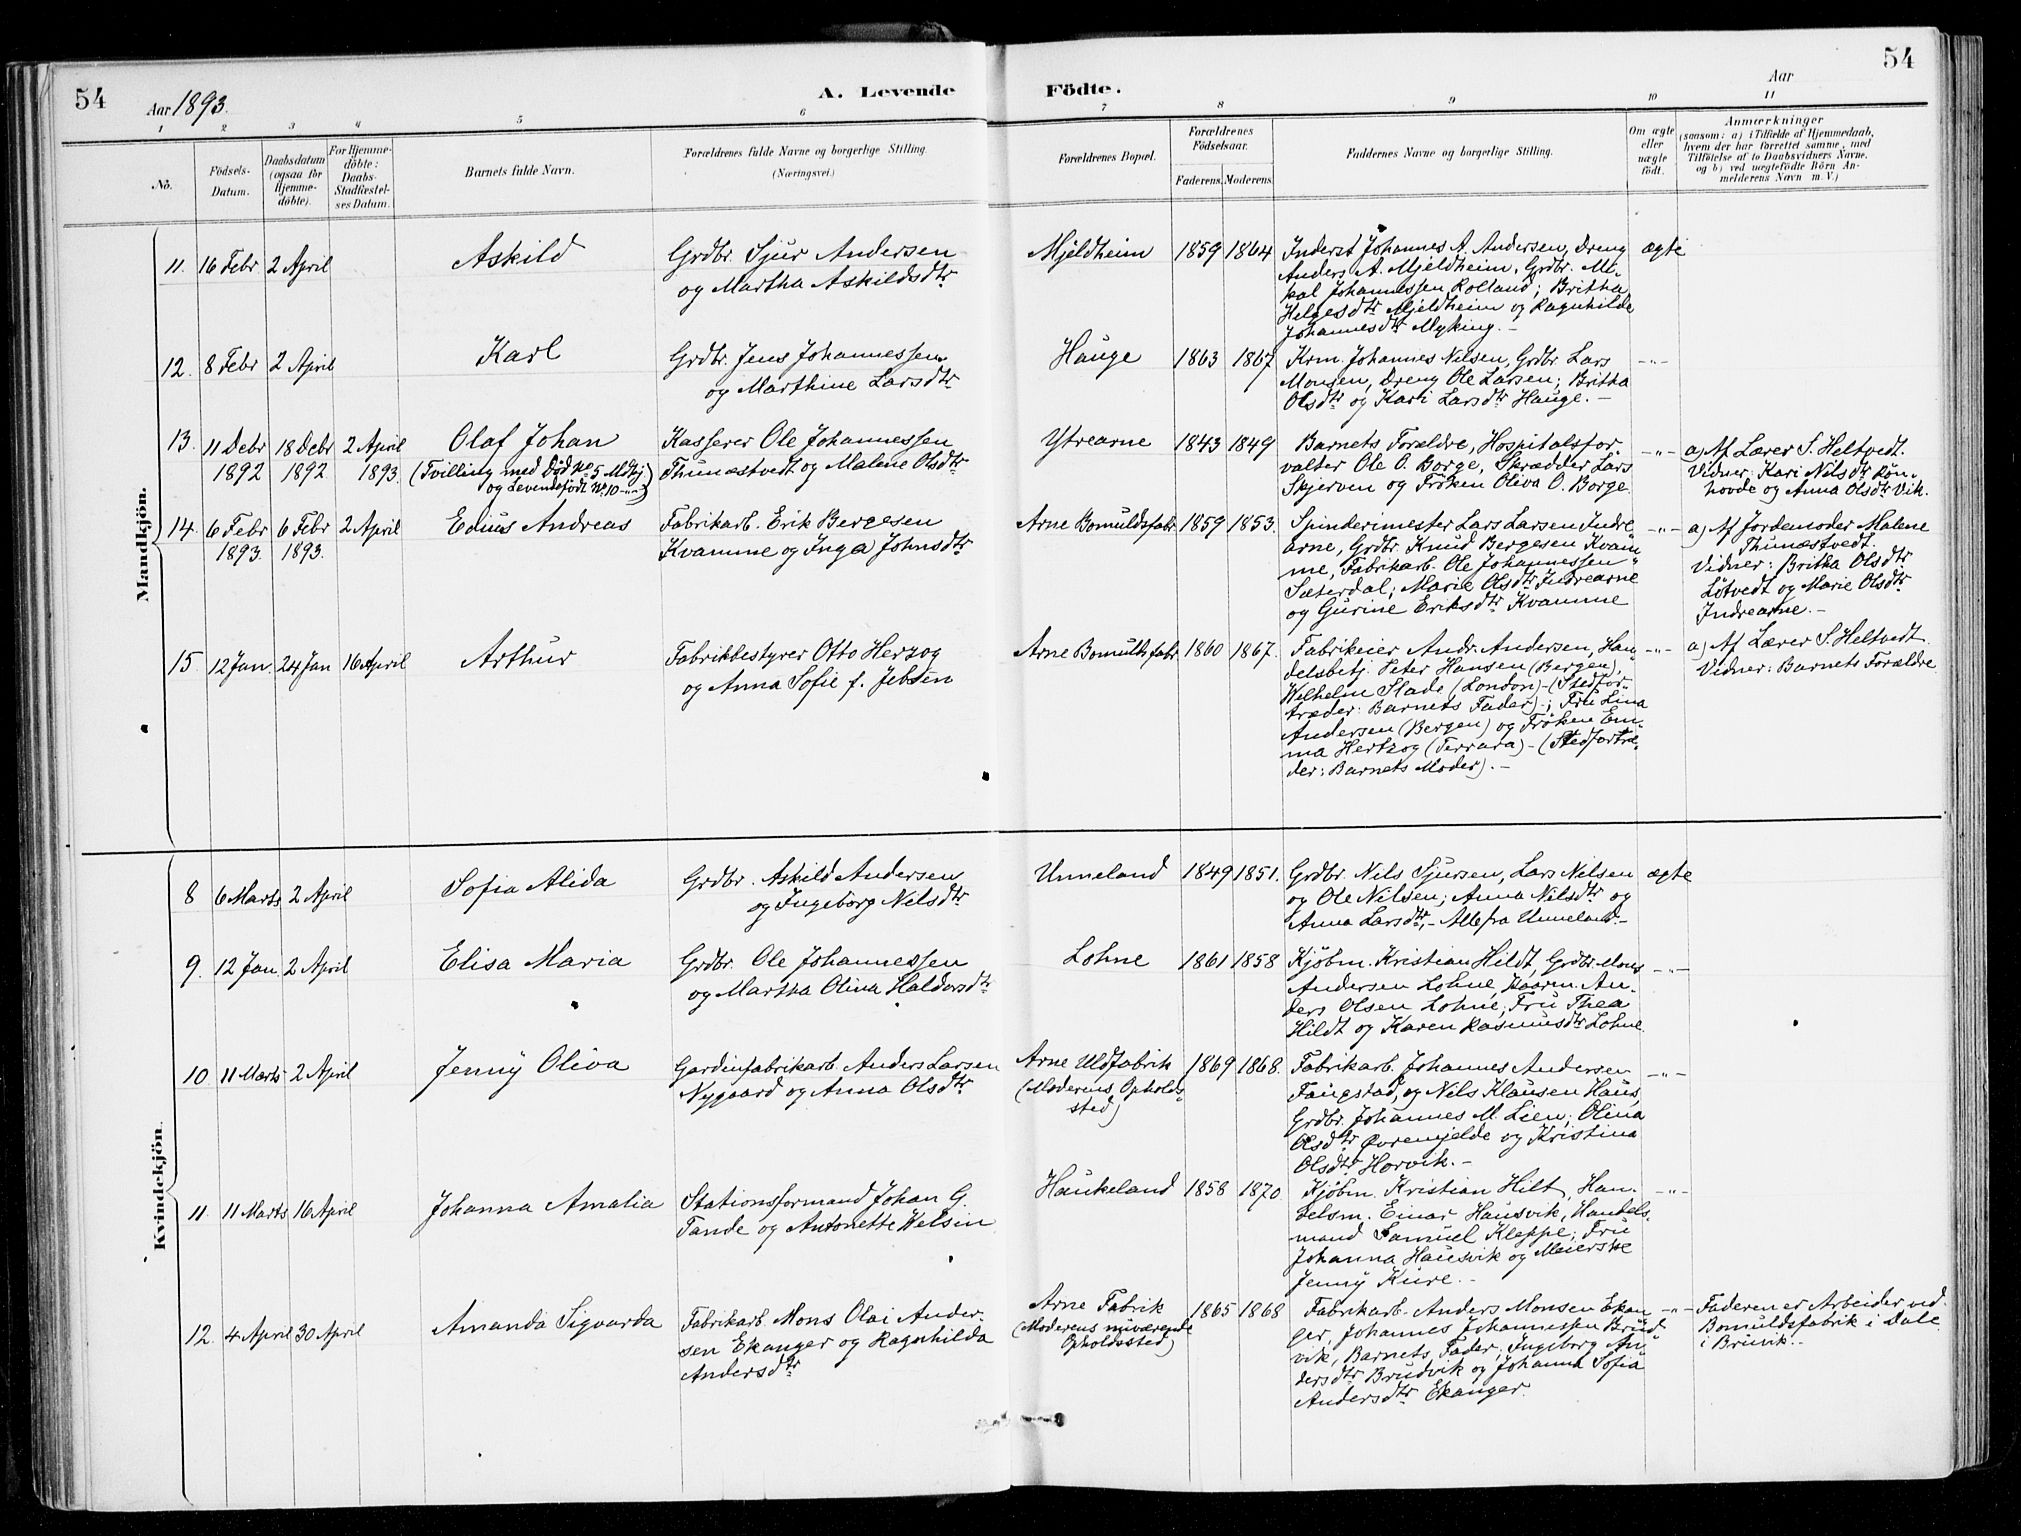 54
Aar 1893.
A. Levende
Födte.
Aar
54
1 2 3 4 5 6 7 8 9 10 11
No.
Födsels-
Datum.
Daabsdatum
(ogsaa for
Hjemme-
döbte).
For Hjemme-
döbte:
Daabs-
Stadfæstel-
ses Datum.
Barnets fulde Navn.
Forældrenes fulde Navne og borgerlige Stilling.
(Næringsvei.)
Forældrenes Bopæl.
Forældrenes
Födselsaar.
Faderens. Moderens.
Faddernes Navne og borgerlige Stilling.
Om ægte
eller
uægte
födt.
Anmærkninger
(saasom: a) i Tilfælde af Hjemmedaab,
hvem der har forrettet samme, med
Tilföielse af to Daabsvidners Navne,
og b) ved uægtefödte Börn An-
melderens Navn m. V.)
Mandkjön.
11. 16 Febr 2 April
Askild
Grdbr. Sjur Andersen
og Martha Askildsdtr
Mjeldheim 1859 1864
Inderst Johannes A. Andersen, Dreng
Anders A. Mjeldheim, Grdbr. Mi-
kal Johannessen Rolland; Britha
Helgesdtr Mjeldheim og Ragnhilde
Johannesdtr Myking. -
ægte
12. 8 Febr 2 April
Karl
Grdbr. Jens Johannessen
og Marthine Larsdtr
Hauge 1863 1867
Krm. Johannes Nilsen, Grdbr. Lars
Monsen, Dreng Ole Larsen; Britha
Olsdtr og Kari Larsdtr Hauge. -
-"-
13. 11 Debr 18 Debr 2 April
1892 1892 1893.
Olaf Johan
(Tvilling med Död No 5 Mdkj
og Levendefödt No 10 -"-)
Kasserer Ole Johannessen
Thunæstvedt og Malene Olsdtr
Ytrearne 1843 1849
Barnets Forældre, Hospitalsfor-
valter Ole O. Borge, Skrædder Lars
Skjerven og Fröken Oliva O. Borge.
-"-
a) Af Lærer S. Heltvedt.
Vidner: Kari Nilsdtr Rön-
hovde og Anna Olsdtr Vik.
14. 6 Febr 6 Febr 2 April
1893. 1893.
Edius Andreas
Fabrikarb. Erik Bergesen
Kvamme og Inga Johnsdtr
Arne Bomuldsfabr. 1859 1853.
Spinderimester Lars Larsen Indre
arne, Grdbr. Knud Bergesen Kvam-
me, Fabrikarb. Ole Johannessen
Sæterdal; Marie Olsdtr Indrearne
og Gurine Eriksdtr Kvamme
-"-
a) Af Jordemoder Malene
Thunæstvedt.
Vidner: Britha Olsdtr
Lötvedt og Marie Olsdtr
Indrearne. -
15. 12 Jan. 24 Jan 16 April
Arthur
Fabrikbestyrer Otto Herzog
og Anna Sofie f. Jebsen
Arne Bomulthsfabr. 1860 1867.
Fabrikeier Andr. Andersen, Han-
delsbetj. Peter Hansen (Bergen),
Wilhelm Slade (London) - (Stedfor-
træder: Barnets Fader); Fru Lina
Andersen (Bergen) og Fröken Em-
ma Hertzog (Ferrara) - (Stedfortræ-
der: Barnets Moder). -
-"-
a) Af Lærer S. Heltvedt.
Vidner: Barnets Forældre
Kvindekjön.
8 6 Marts 2 April
Sofia Alida
Grdbr. Askild Andersen
og Ingeborg Nilsdtr
Unneland 1849 1851.
Grdbr. Nils Sjursen, Lars Nilsen
og Ole Nilsen; Anna Nilsdtr og
Anna Larsdtr, - Alle fra Unneland. -
ægte
9. 12 Jan. 2 April
Elisa Maria
Grdbr. Ole Johannessen
og Martha Olina Haldorsdtr
Lohne 1861 1858
Kjöbm. Kristian Hildt, Grdbr. Mons
Andersen Lohne, Kaarm. An-
ders Olsen Lohne; Fru Thea
Hildt og Karen Rasmusdtr Lohne.
-"-
10 11 Marts 2 April
Jenny Oliva
Gardinfabrikarb. Anders Larsen
Nygaard og Anna Olsdtr
Arne Uldfabrik
(Moderens Opholds-
sted)
1869 1868.
Fabrikarb. Johannes Andersen
Faugstad, og Nils Klausen Haus,
Grdbr. Johannes M. Lien; Olina
Olsdtr Övremjelde og Kristina
Olsdtr Horvik. -
-"-
11. 11 Marts 16 April
Johanna Amalia
Stationsformand Johan G.
Tande og Antonette Welsin
Haukeland 1858 1870.
Kjöbm. Kristian Hilt, Han-
delsm. Einar Hausvik, Handels-
mand Samuel Kleppe; Fru
Johanna Hausvik og Meierske
Jenny Kure. -
-"-
12. 4 April 30 April
Amanda Sigvarda
Fabrikarb. Mons Olai Ander-
sen Ekanger og Ragnhilda
Andersdtr
Arne Fabrik
(Moderens nuværende
Opholdssted)
1865 1868
Fabrikarb. Anders Monsen Ekan-
ger, Johannes Johannessen Brud-
vik, Barnets Fader; Ingeborg An-
dersdtr Brudvik og Johanna Sofia
Andersdtr Ekanger.
-"-
Faderen er Arbeider ved
Bomuldsfabrik i Dale
i Bruvik. -